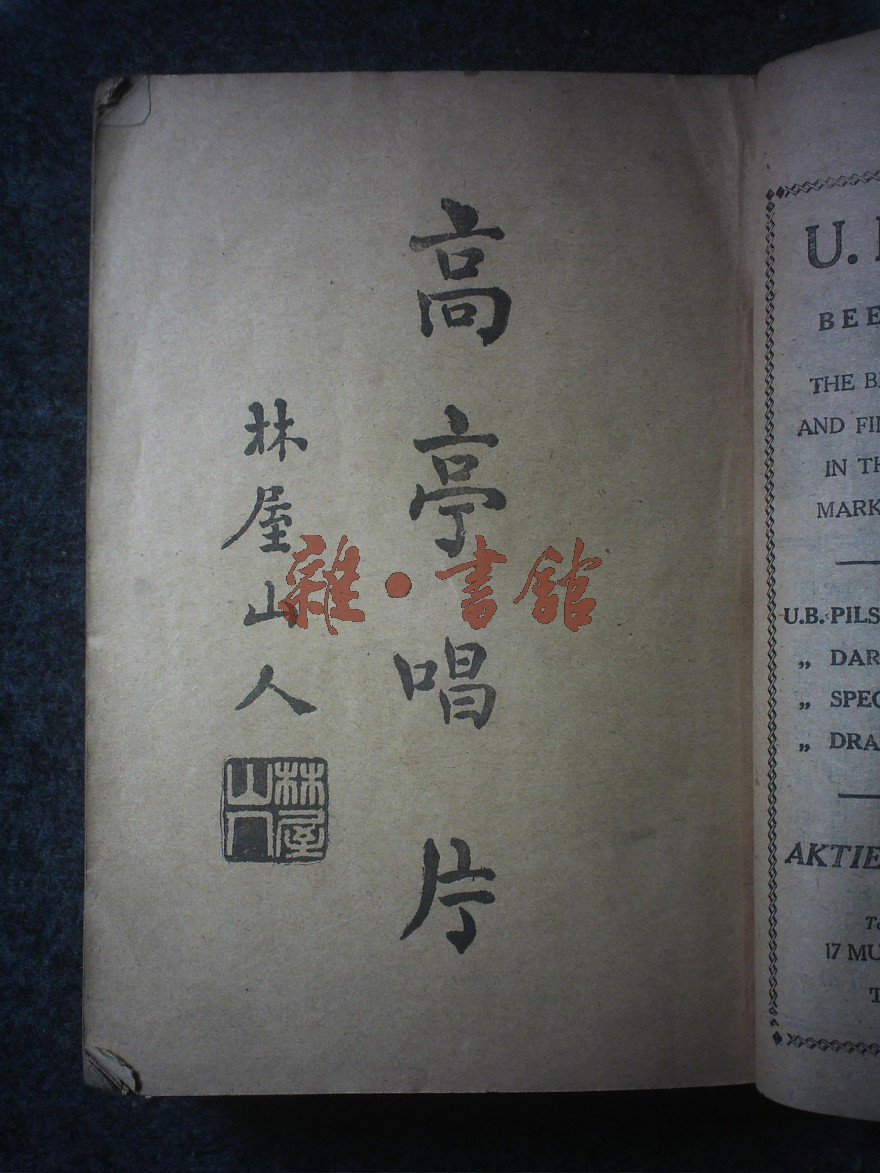 高亭唱片
林屋山人
林屋山人
雜·書館
U.
BEE
THE B
AND FI
IN TH
MARK
U.B. PILS
„ DAR
„ SPEC
„ DRA
AKTIE
17 MU
T